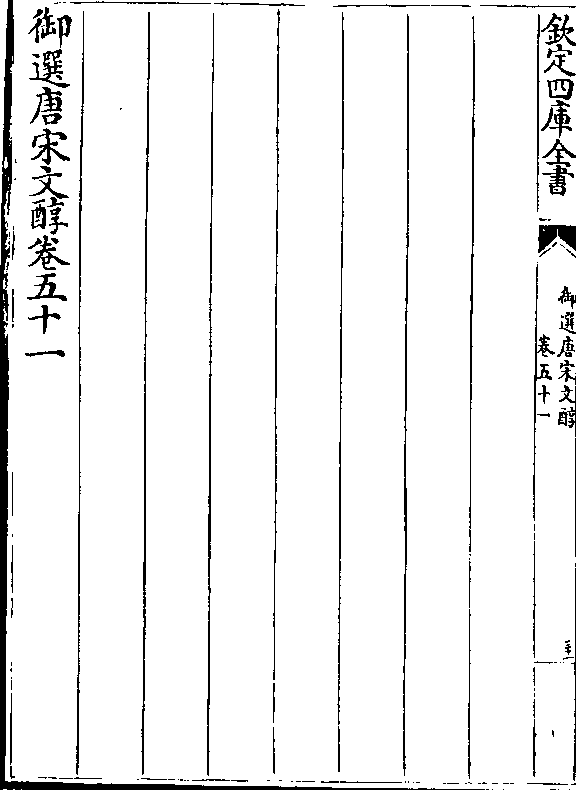 欽定四庫全書
御選唐宋文醇
卷五十一
御選唐宋文醇卷五十一